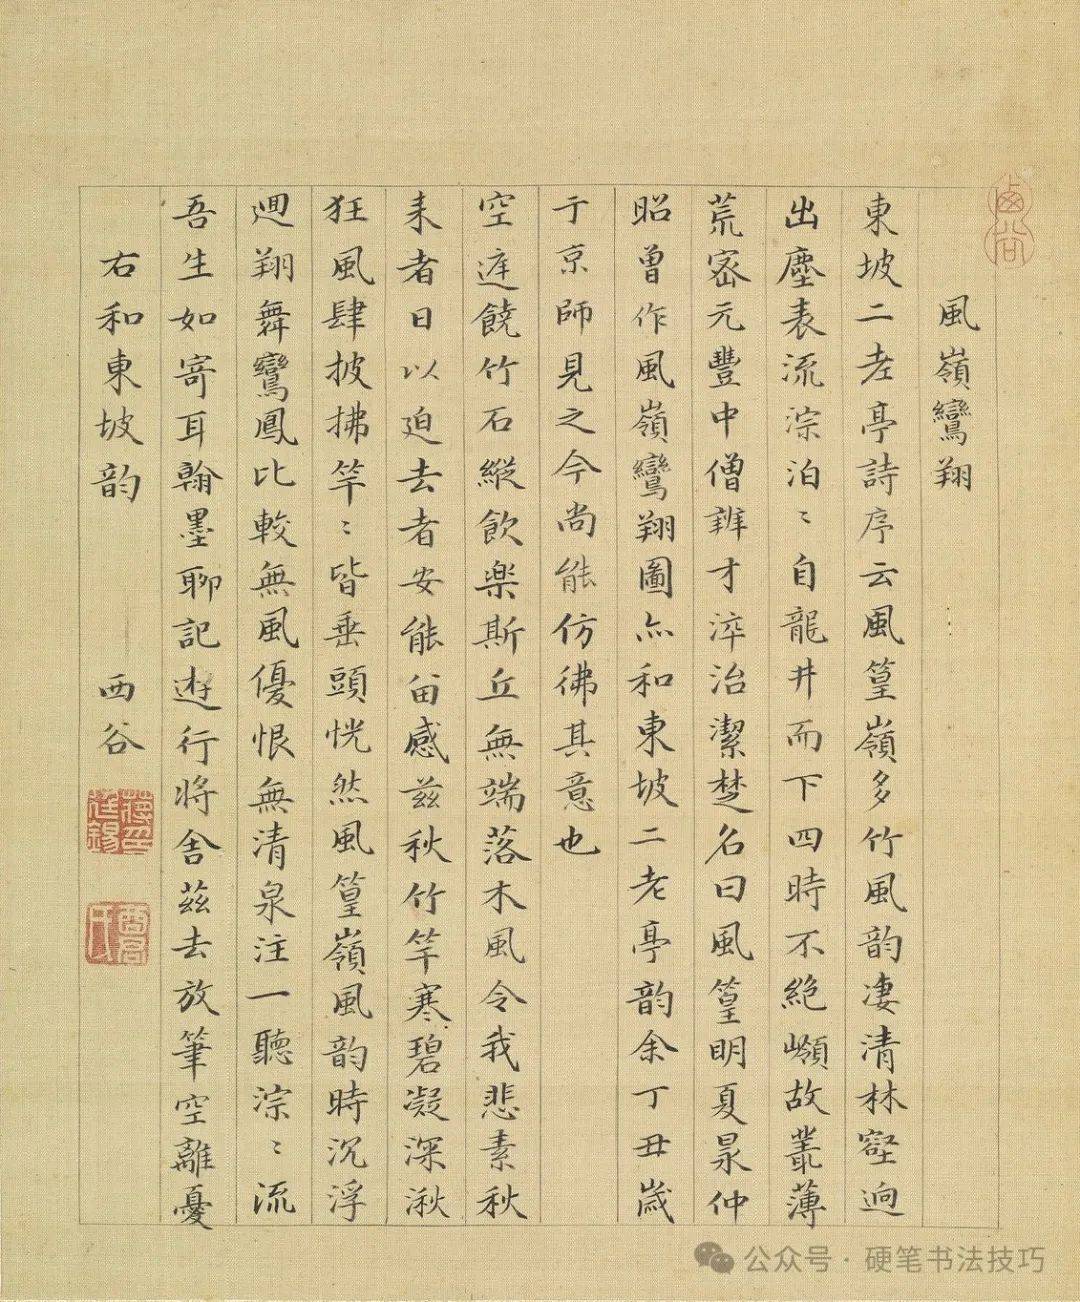 風嶺鸞翔
東坡二老亭詩序云風篁嶺多竹風韵凄清林壑迥
出塵表流淙泊〻自龍井而下四時不絕嶺故叢薄
荒密元豐中僧辨才淬治潔楚名曰風篁明夏㫤仲
昭曾作風嶺鸞翔圖亦和東坡二老亭韵余丁丑歲
于京師見之今尚能仿彿其意也
空庭饒竹石縱飲樂斯丘無端落木風令我悲素秋
来者日以迫去者安能留感兹秋竹竿寒碧凝深湫
狂風肆披拂竿〻皆垂頭恍然風篁嶺風韵時沉浮
迴翔舞鸞鳳比較無風優恨無清泉注一聽淙〻流
吾生如寄耳翰墨聊記遊行將舍茲去放筆空離憂
右和東坡韵 西谷
蔣廷錫印
酉君氏
公众号·硬笔书法技巧